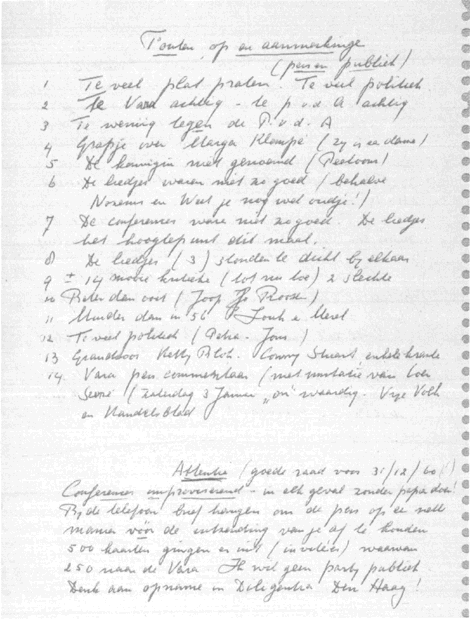 Fouten, op en aanmerkinge
(pers en publiek)
1 Te veel plat praten. Te veel politiek.
2 Te Vara achtig - te p.v.d.A achtig
3 Te weinig tegen de P.v.d.A
4 Grapje over Marga Klompé (zy is een dame!)
5 De koningin niet genoemd
6 De liedjes waren niet zo goed (behalve
Norens en Weet je nog wel oudje!)
7 De conferences waren niet zo goed. De liedjes
het hoogtepunt dit maal.
8 De liedjes (3) stonden te dicht by elkaar
9 ± 14 mooie kritieken (tot nu toe) 2 slechte
10 Beter dan ooit (Joop
11 Minder dan in 56
12 Te veel politiek
13 Grandioos Ketty Conny Stuart, enkele krante
14. Vara pers commentaar (met imitatie van
(Zaterdag 3 Januari waardig. Vrye Volk
en Handelsblad
Attentie (goede raad voor 31/12/60!)
Conferences improviserend - in elk geval zonder
By de telefoon brief hangen om de pers op een nette
manier vóór de uitzending van je af te houden
500 kaarten gingen er uit (invités) waarvan
250 naar de Vara Ik wil geen party publiek
Denk aan opname in Diligentia Den Haag!